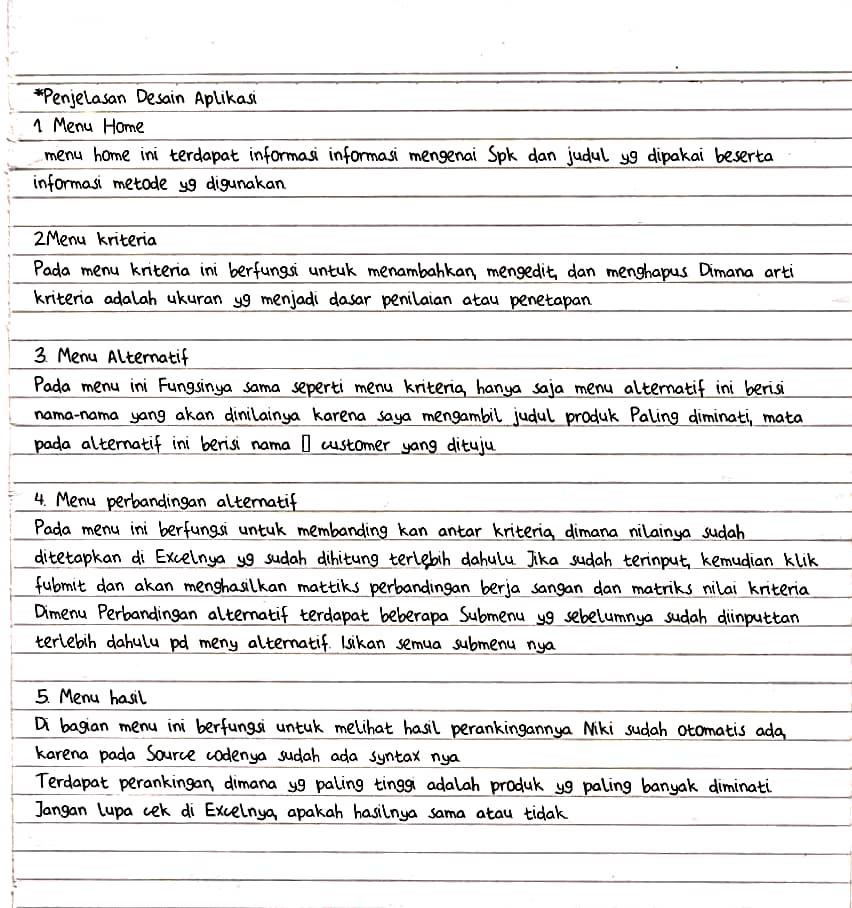 *Penjelasan Desain Aplikasi
1 Menu Home
menu home ini terdapat informasi informasi mengenai Spk dan judul yg dipakai beserta
informasi metode yg digunakan
2Menu kriteria
Pada menu kriteria ini berfungsi untuk menambahkan, mengedit, dan menghapus Dimana arti
kriteria adalah ukuran yg menjadi dasar penilaian atau penetapan
3. Menu Alternatif
Pada menu ini Fungsinya sama seperti menu kriteria, hanya saja menu alternatif ini berisi
nama-nama yang akan dinilainya karena saya mengambil judul produk Paling diminati, mata
pada alternatif ini berisi nama ▯ customer yang dituju
4. Menu perbandingan alternatif
Pada menu ini berfungsi untuk membanding kan antar kriteria, dimana nilainya sudah
ditetapkan di Excelnya yg sudah dihitung terlebih dahulu. Jika sudah terinput, kemudian klik
fubmit dan akan menghasilkan mattiks perbandingan berja sangan dan matriks nilai kriteria
Dimenu Perbandingan alternatif terdapat beberapa Submenu yg sebelumnya sudah diinputtan
terlebih dahulu pd meny alternatif. Isikan semua submenu nya
5. Menu hasil
Di bagian menu ini berfungsi untuk melihat hasil perankingannya Niki sudah otomatis ada,
karena pada Source codenya sudah ada syntax nya
Terdapat perankingan, dimana yg paling tinggi adalah produk yg paling banyak diminati.
Jangan lupa cek di Excelnya, apakah hasilnya sama atau tidak